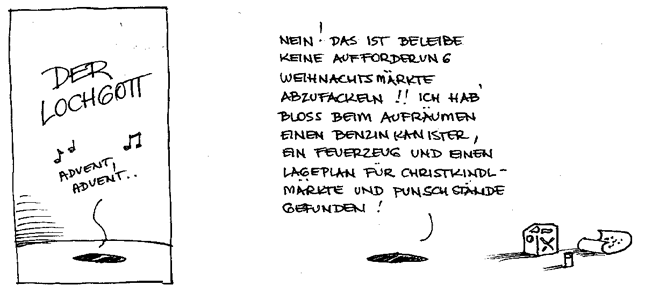 DER
LOCHGOTT
ADVENT,
ADVENT..
NEIN! DAS IST BELEIBE
KEINE AUFFORDERUNG
WEIHNACHTSMÄRKTE
ABZUFACKELN !! ICH HAB'
BLOSS BEIM AUFRÄUMEN
EINEN BENZINKANISTER,
EIN FEUERZEUG UND EINEN
LAGEPLAN FÜR CHRISTKINDL-
MÄRKTE UND PUNSCHSTÄNDE
GEFUNDEN !